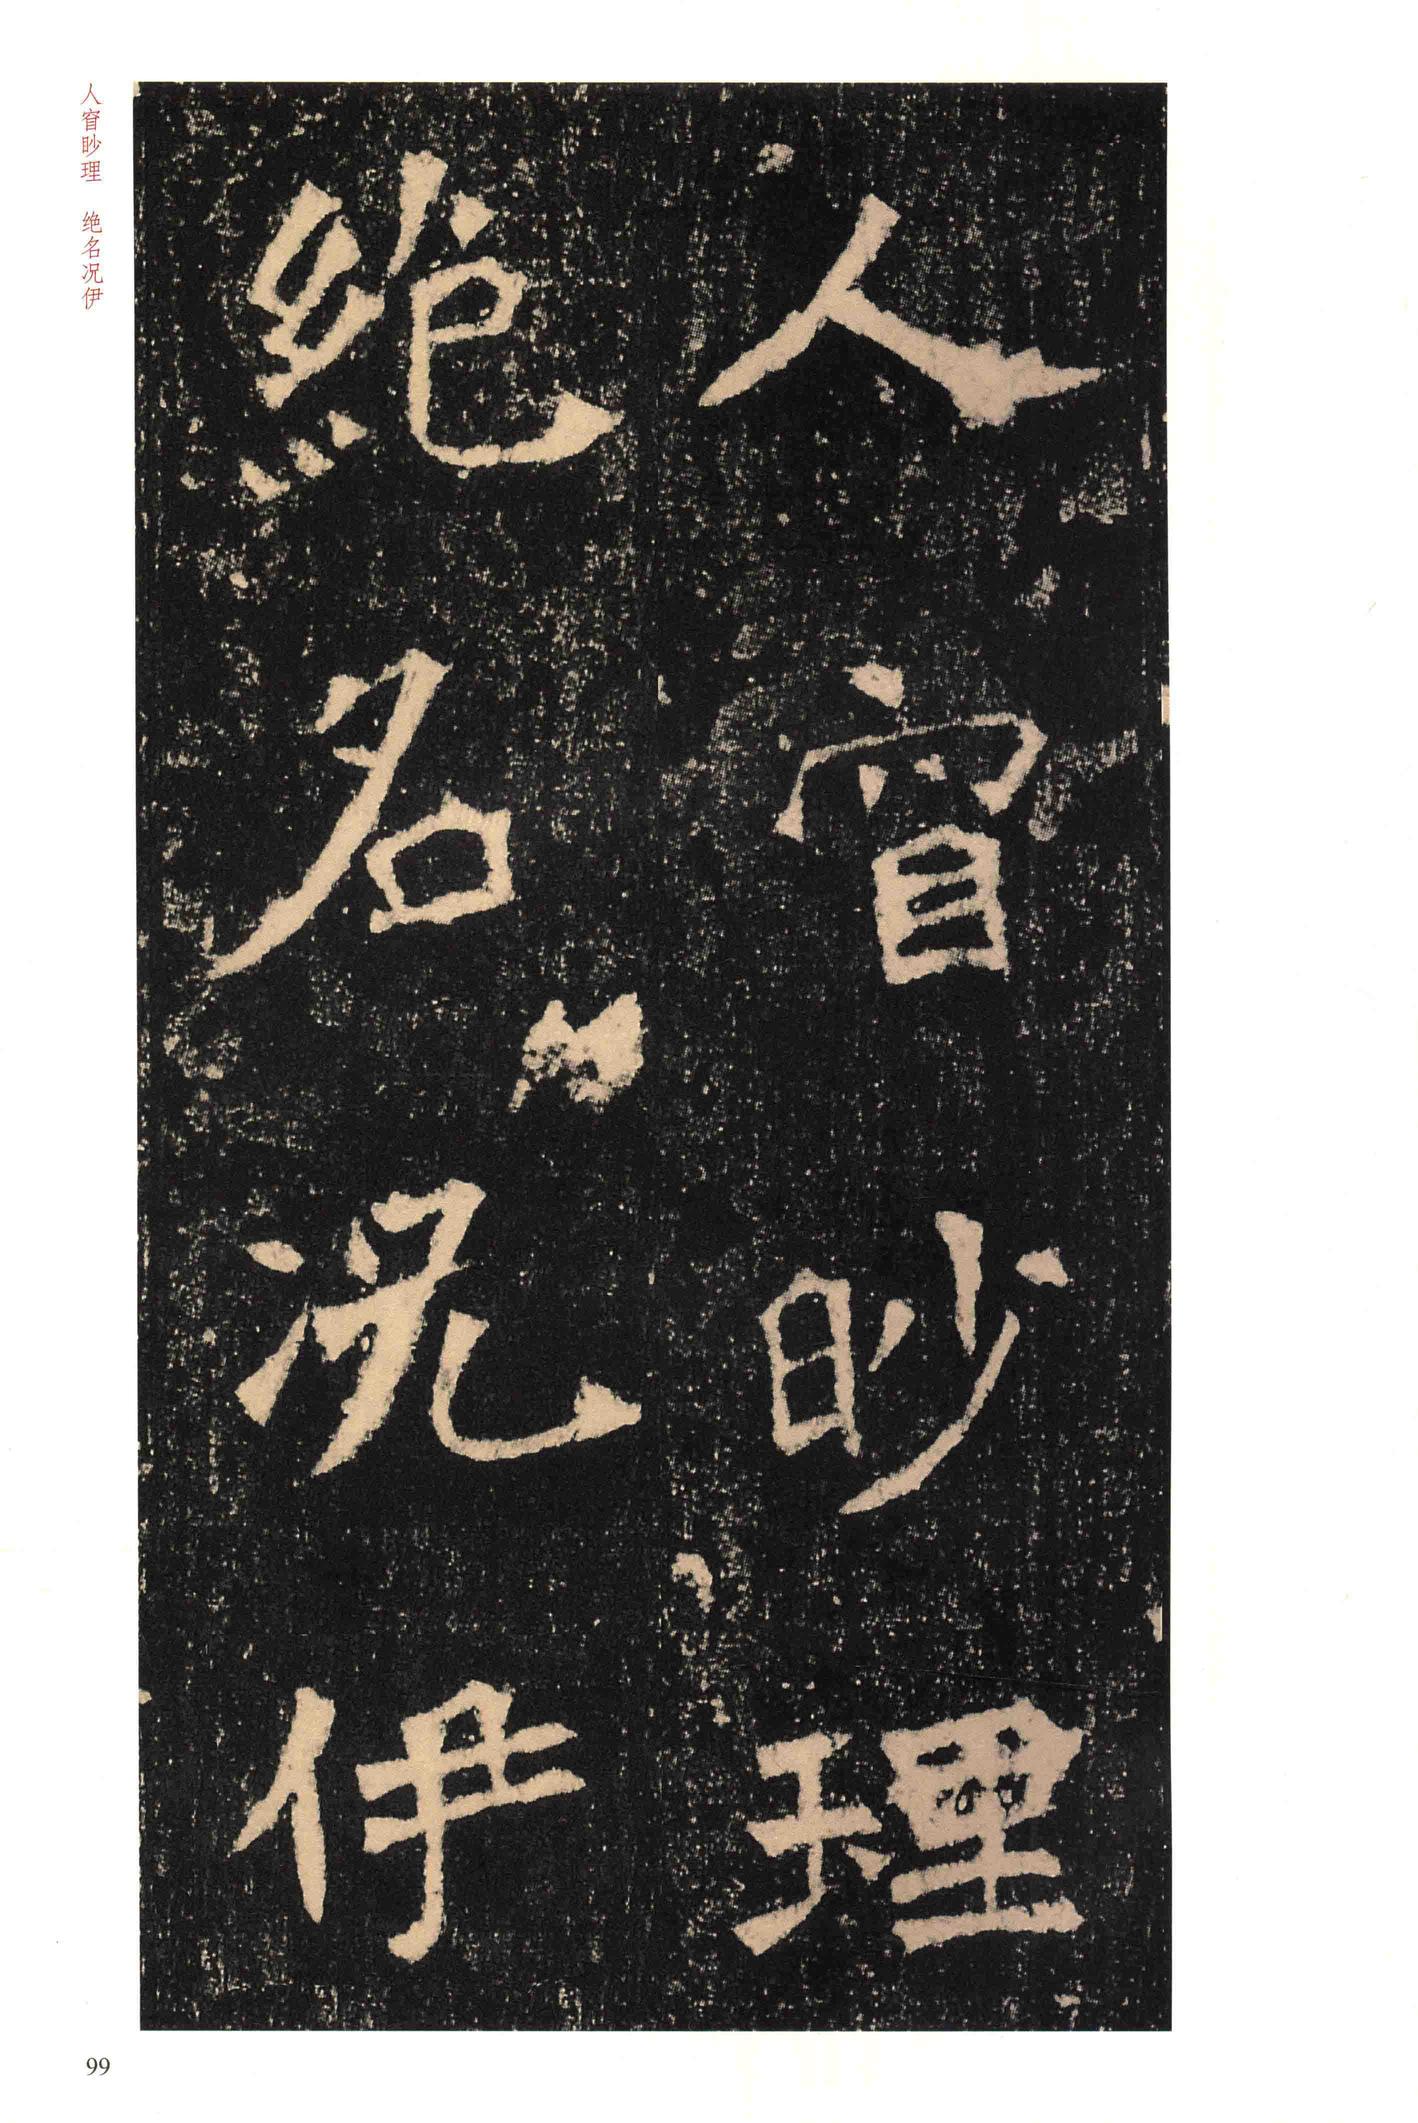 人窅眇理
絶名况伊
人窅眇理 绝名况伊
99